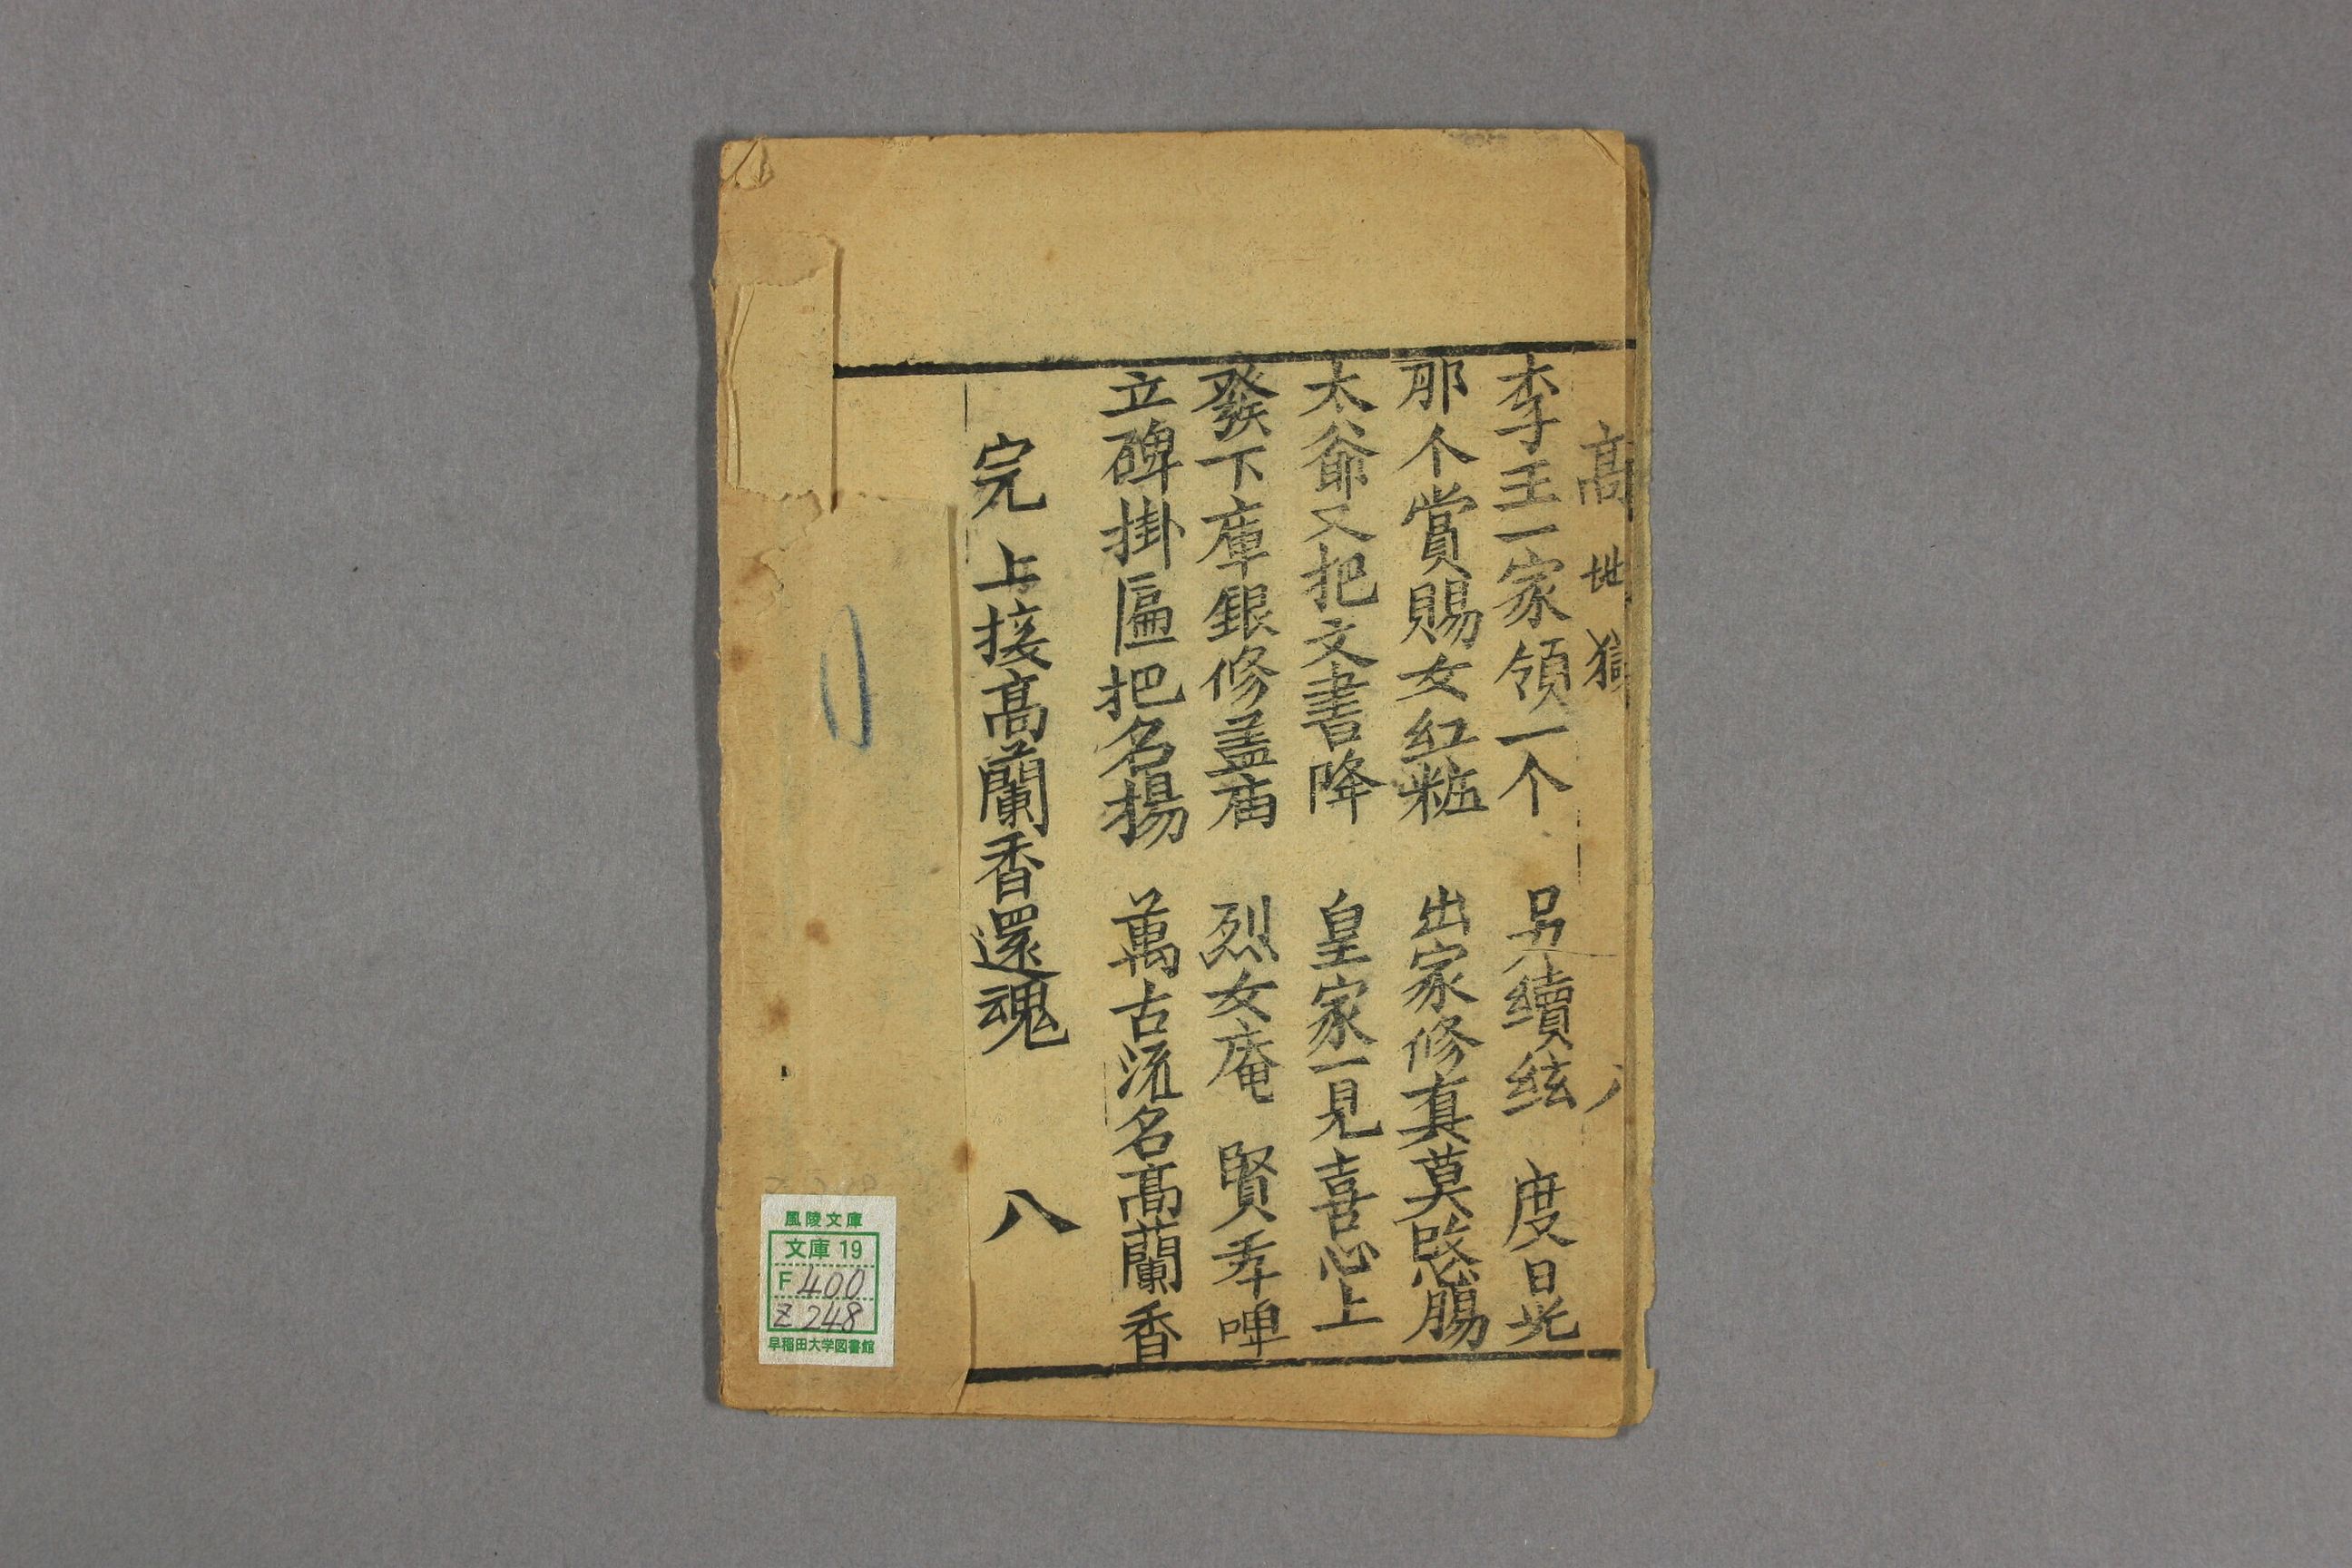 高地獄 八
李王一家領一个 另續絃 度日光
那个賞賜女紅粧 出家修真莫愍腸
太爺又把文書降 皇家一見喜心上
發下庫銀修盖庙 烈女庵 賢孝啤
立碑掛匾把名揚 萬古流名高蘭香
完 上接高蘭香還魂 八
風陵文庫
文庫 19
F 400
Z 248
早稲田大学図書館